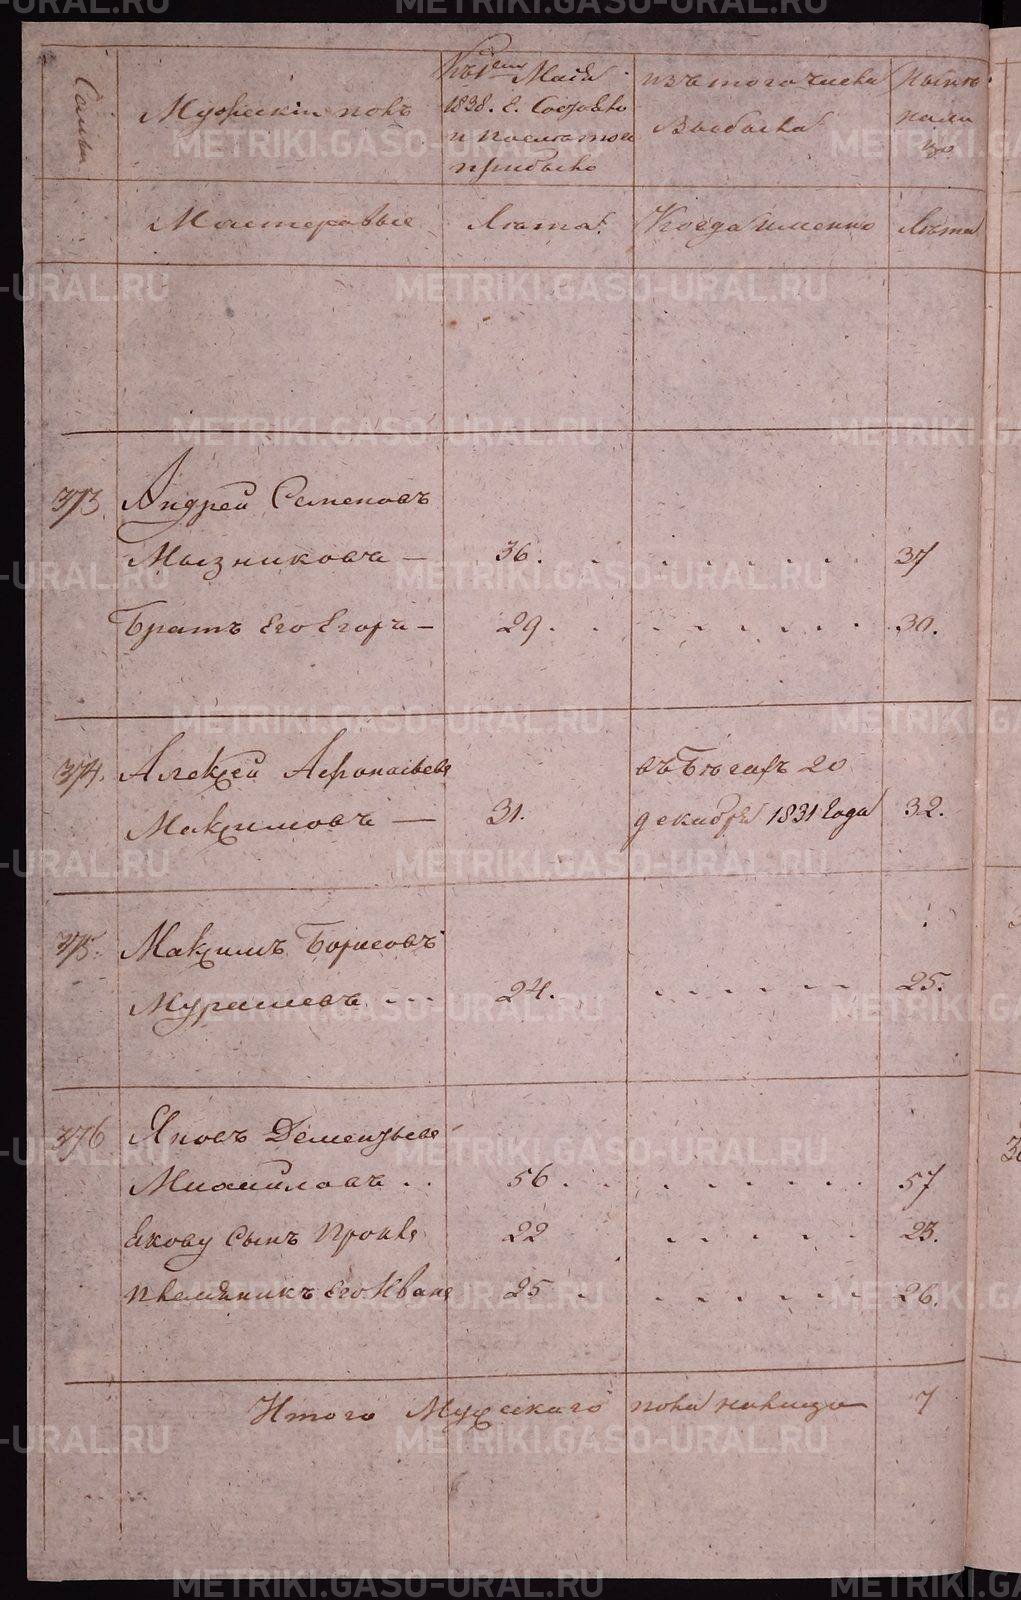 Семьи
Мужескiй полъ
Къ 1ему Маiя
1838. г. Состояло
и после того
прибыло
изъ того числа
выбыло
Ныне
нали
цо
Мастеровые
Лета.
Когда именно
Лета
373. Андрей Семеновъ
Мызниковъ — 36. 37
Братъ его Егоръ — 29. 30.
374. Алексей Афонасьевъ въ Бегахъ 20
Максимовъ — 31. декабря 1831 года 32.
375. Максимъ Борисовъ
Мурашевъ 24. 25.
376 Яковъ Дементьевъ
Михайловъ 56. 57
Якову Сынъ Прокоп. 22 23.
племянникъ его Иванъ 25 26.
Итого Мужескаго пола налицо 7
METRIKI.GASO-URAL.RU